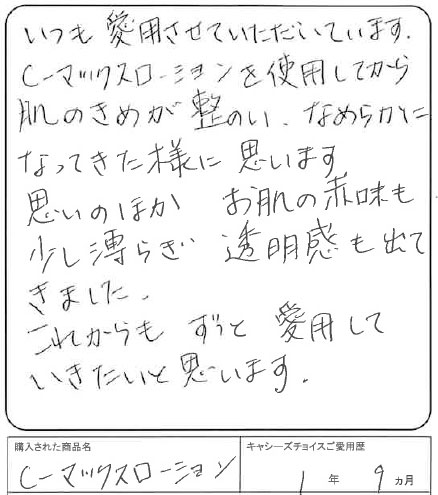 いつも愛用させていただいています.
C-マックスローションを使用してから
肌のきめが整のい、なめらかに
なってきた様に思います
思いのほか お肌の赤味も
少し薄らぎ 透明感も出て
きました.
これからも ずっと 愛用して
いきたいと思います.
購入された商品名
C-マックスローション
キャシーズチョイスご愛用歴
1 年 9 ヵ月